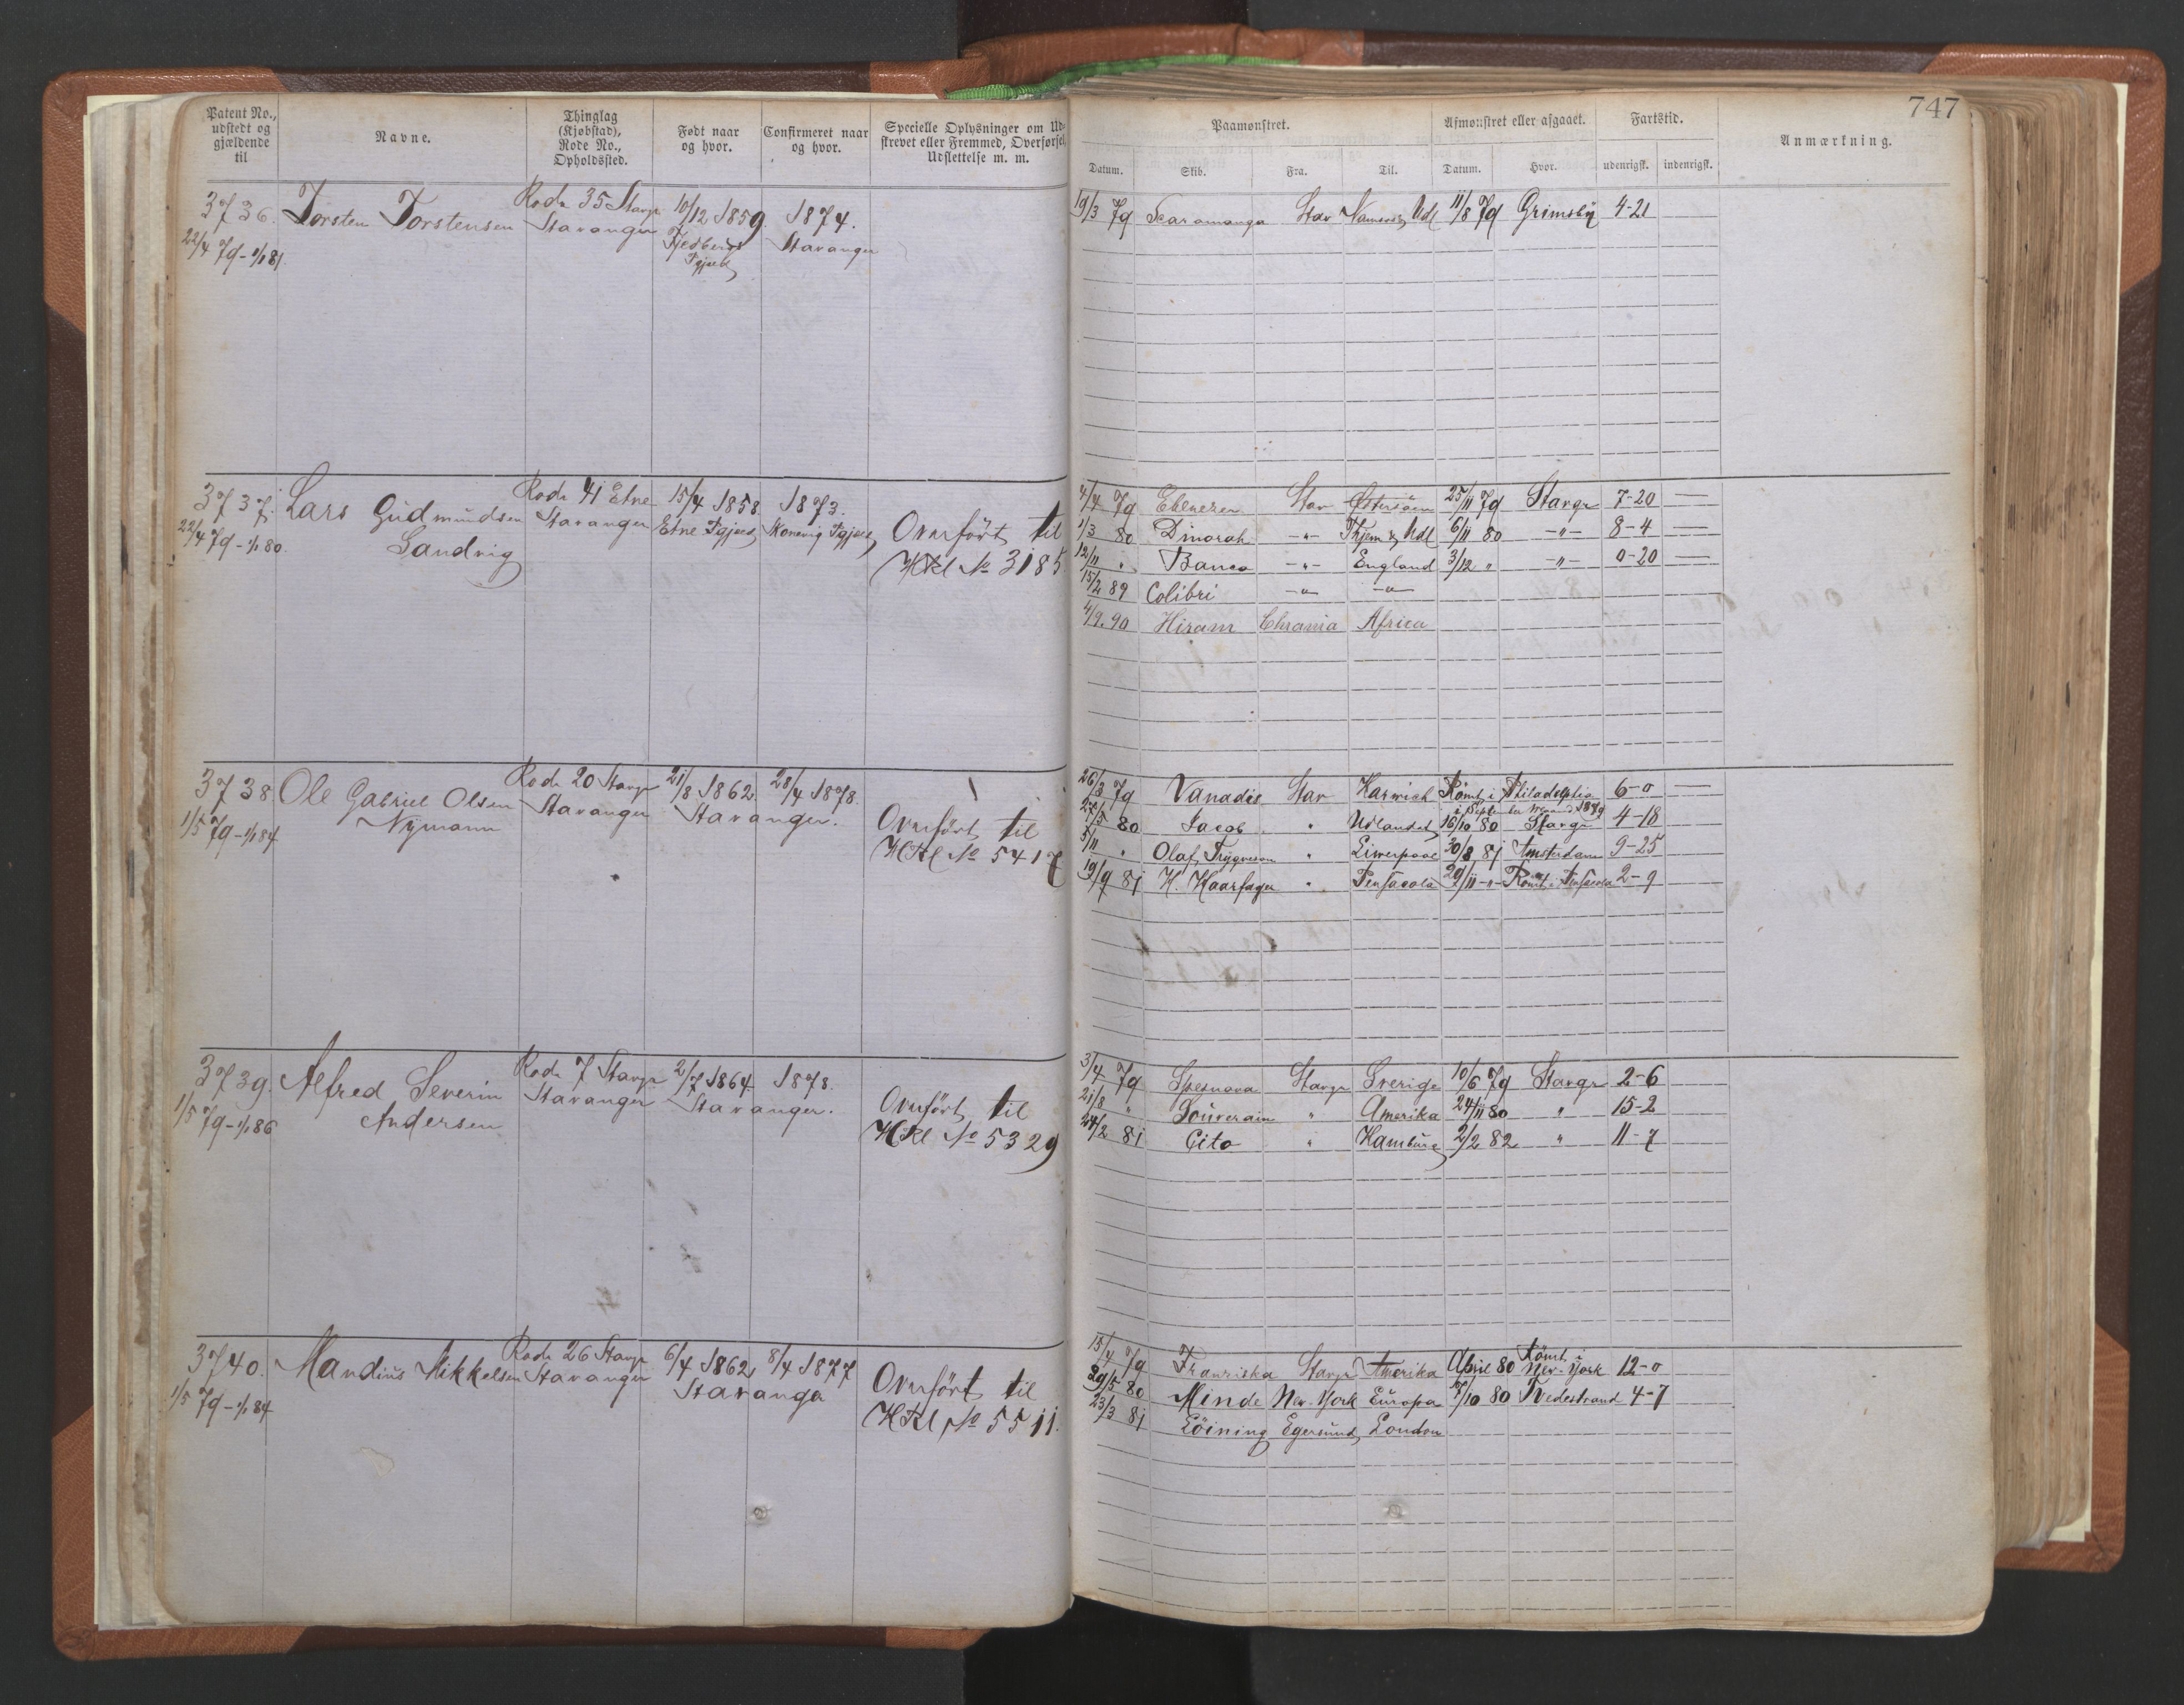 Patent No.,
udstedt og
gjældende
til
Navne.
Thinglag
(Kjøbstad),
Rode No.,
Opholdssted.
Født naar
og hvor.
Confirmeret naar
og hvor.
Specielle Oplysninger om Ud-
skrevet eller Fremmed, Overførsel,
Udslettelse m. m.
3736.
22/4 79 - 1/1 81.
Torsten Torstensen
Rode 35 Stavgr
Stavanger
10/12 1859.
Fgjæld
1874.
Stavanger
3737.
22/4 79 - 1/1 80.
Lars Gudmundsen
Sandvig
Rode 41 Etne
Stavanger
15/4 1858
Etne Pgjæld
1873.
Skonevig Pgjæld
Overført til
HRl No 3185.
3738.
1/5 79 - 1/1 84.
Ole Gabriel Olsen
Nymann
Rode 20 Stavgr
Stavanger
21/8 1862.
Stavanger.
28/4 1878.
Overført til
HRl No 5417
3739.
1/5 79 - 1/1 86
Alfred Severin
Andersen
Rode 7 Stavgr
Stavanger
2/7 1864.
Stavanger.
1878.
Overført til
HRl No 5329
3740.
1/5 79 - 1/1 84.
Mandius Mikkelsen
Rode 26 Stavgr
Stavanger
6/4 1862
Stavanger
8/4 1877
Overført til
HRl No 5511.
747
Paamønstret.
Afmønstret eller afgaaet.
Fartstid.
Anmærkning.
Datum. Skib. Fra. Til. Datum. Hvor. udenrigsk. indenrigsk.
19/3 79 Scaramanga Stav Namsos & Udl 11/8 79 Grimsby 4-21
4/4 79 Ebenezer Stav Østersøen 25/11 79 Stavgr 7-20 —
1/3 80 Dinorah -"- Thjem & Udl 6/11 80 -"- 8-4 —
12/11 " Banco -"- England 3/12 " -"- 0-20 —
15/2 89 Colibri -"- -"-
4/9. 90 Hiram Chrania Africa
26/3 79 Vanadis Stav Harwich Rømt i Philadelphia 6-0 —
i September maaned 1879
27/5 80 Jacob " Udlandet 16/10 80 Stavgr 4-18
5/11 " Olaf Trygveson " Liverpool 30/8 81 Amsterdam 9-25
19/9 81 H. Haarfager " Pensacola 29/11 -"- Rømt i Pensacola 2-9
3/4 79 Spesnova Stavgr Sverige 10/6 79 Stavgr 2-6
21/8 " Souverain " Amerika 24/11 80 " 15-2
24/2 81 Cito " Hamburg 2/2 82 " 11-7
15/4 79 Franziska Stavgr Amerika April 80 Rømt New-York 12-0
29/5 80 Minde New-York Europa 7/10 80 Tvedestrand 4-7
23/3 81 Löining Egersund London